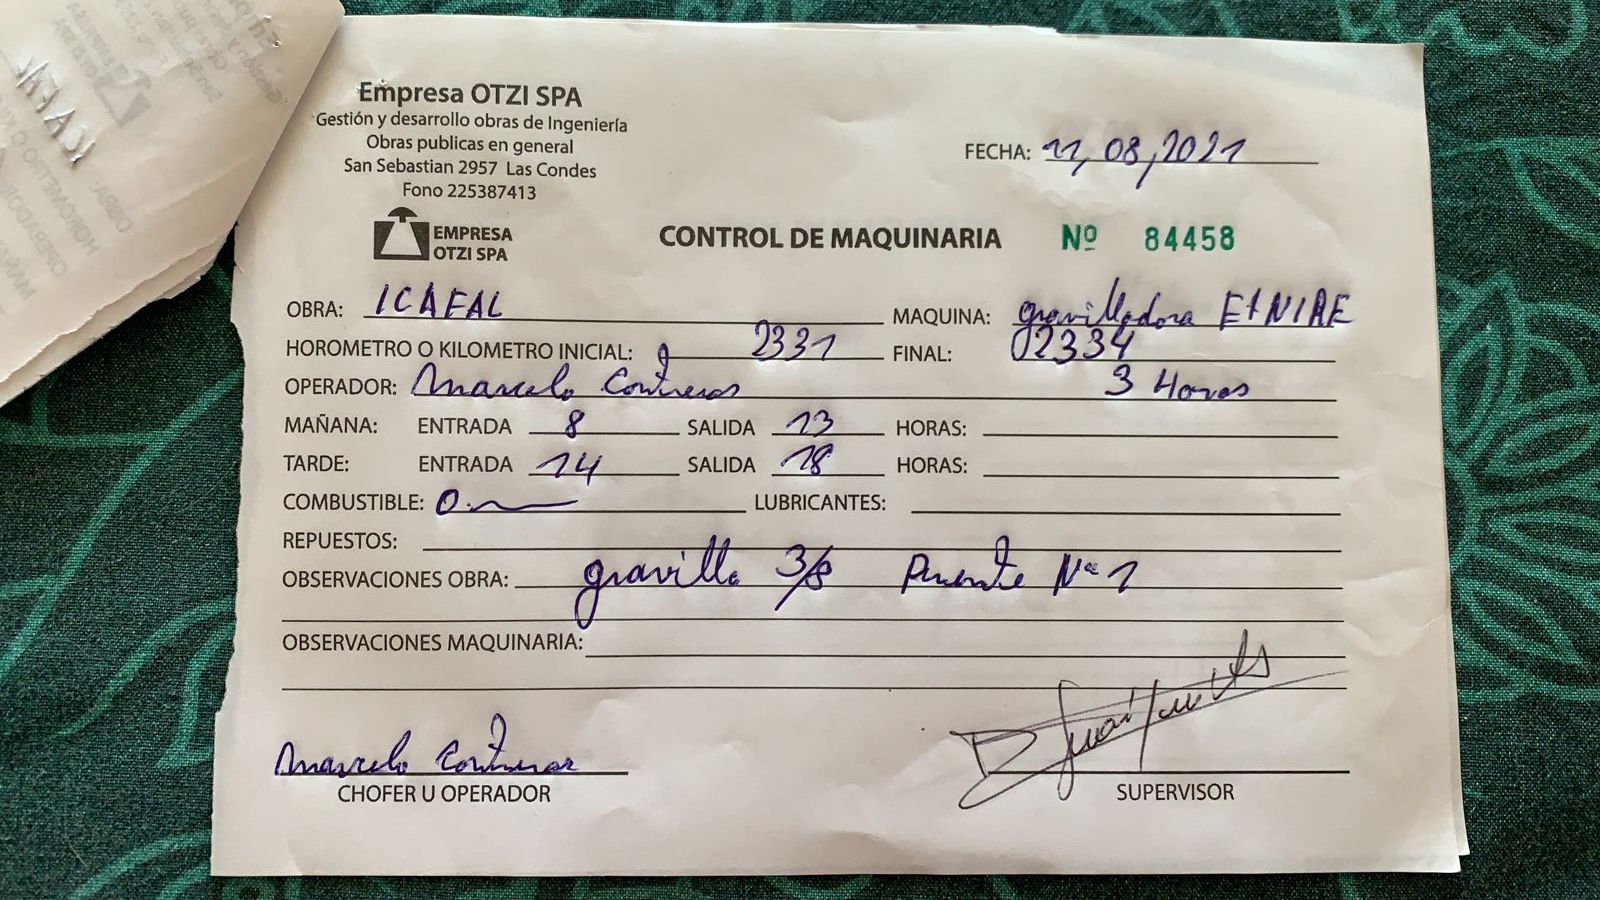 Empresa OTZI SPA
Gestión y desarrollo obras de Ingeniería
Obras publicas en general
San Sebastian 2957 Las Condes
Fono 225387413
FECHA: 11,08,2021
EMPRESA
OTZI SPA
CONTROL DE MAQUINARIA Nº 84458
OBRA: ICAFAL MAQUINA: gravilladora EtNIRE
HOROMETRO O KILOMETRO INICIAL: 2331 FINAL: 02334
OPERADOR: Marcelo Contreras 3 Horas
MAÑANA: ENTRADA 8 SALIDA 13 HORAS:
TARDE: ENTRADA 14 SALIDA 18 HORAS:
COMBUSTIBLE: 0.- LUBRICANTES:
REPUESTOS:
OBSERVACIONES OBRA: gravilla 3/8 Puente Nº 1
OBSERVACIONES MAQUINARIA:
Marcelo Contreras
CHOFER U OPERADOR SUPERVISOR